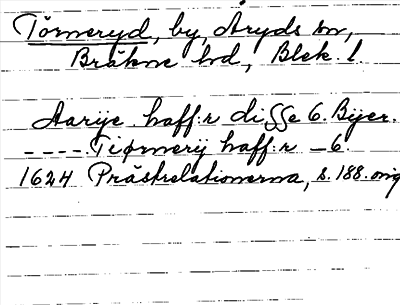 Törneryd, by, Aryds sn,
Bräkne hd, Blek. l.
Aarÿe haff:r disse 6. Bÿer.
----. Tiørnerÿ haff:r — 6.
1624 Prästrelationerna, s. 188. orig